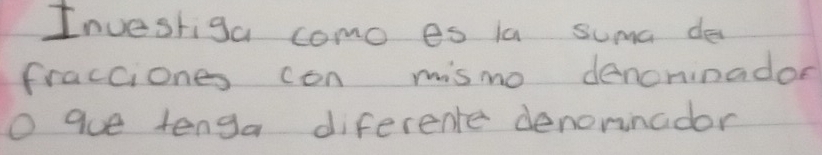 Investiga como es la suma de
fracciones con mismo denominador
o que tenga diferente denominador